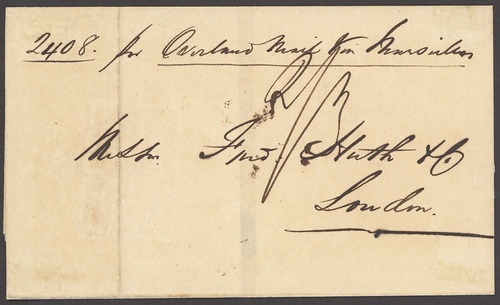 2408. per Overland Mail via Marseilles
Messrs Fred. Huth & Co
London.